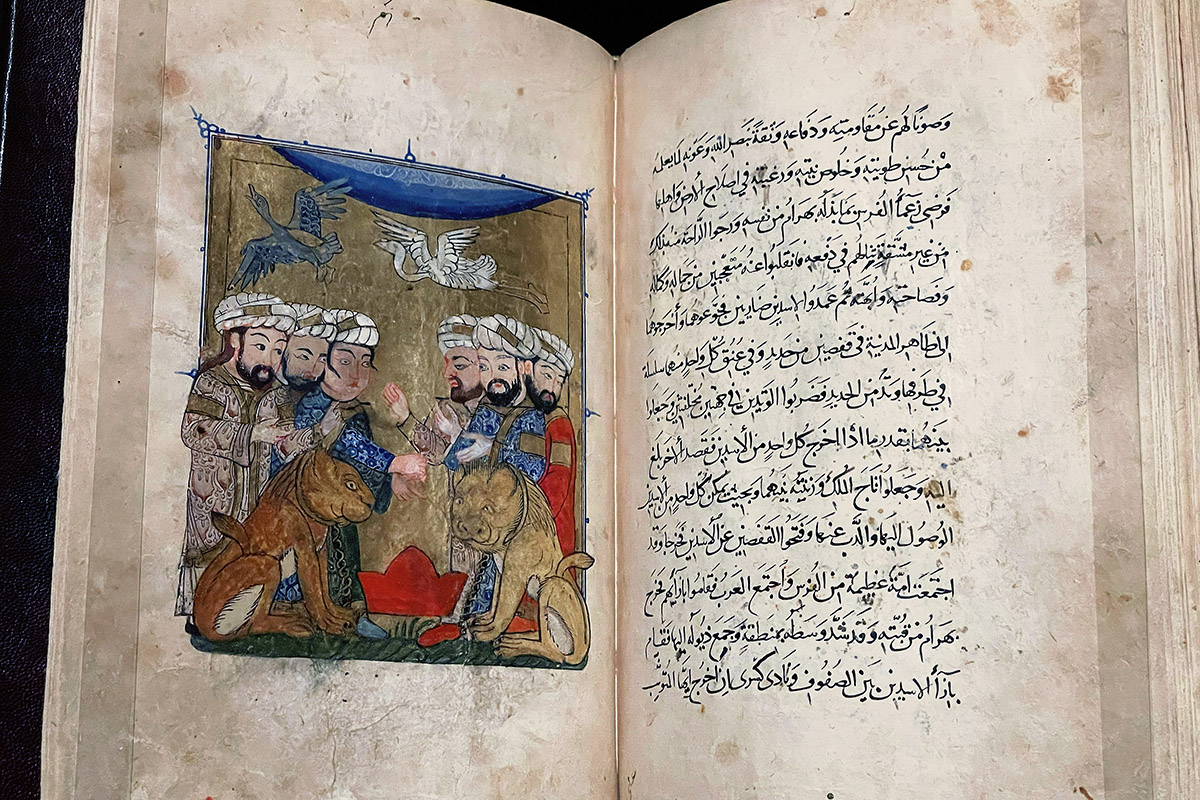 وصونا لهم عن مقاومته ودفاعه وثقة بنصر الله وعونه لما يعلمه
من حسن طويته وخلوص نيته ورغبته في اصلاح الارض واهلها
فرضى زعماء الفرس بما بذله بهرام من نفسه ورجوا الراحة منه بذلك
من غير مشقة تنالهم في دفعه فانقلبوا عنه متعجبين من جماله وكماله
وفصاحته وابهته ثم عمدوا الاسدين ضاريين فجوعوهما واخرجوهما
الى ظاهر المدينة في قفصين من حديد وفي عنق كل واحد منهما سلسلة
في طرفها وتد من الحديد فضربوا الوتدين في جهتين مختلفتين وجعلوا
بينهما بقدر ما اذا اخرج كل واحد من الاسدين فقصد الاخر بلغ
اليه وجعلوا تاج الملك وزينته بينهما وبحيث يمكن كل واحد من الاسدين
الوصول اليهما والذب عنهما وفتحوا القفصين عن الاسدين فخرجا وقد
اجتمعت امة عظيمة من الفرس واجتمع العرب فقاموا بازائهم فخرج
بهرام من قبته وقد شد وسطه بمنطقة وجمع ذيوله اليها فقام
بازاء الاسدين بين الصفوف ونادى كسرى ان اخرج ايها التوثب